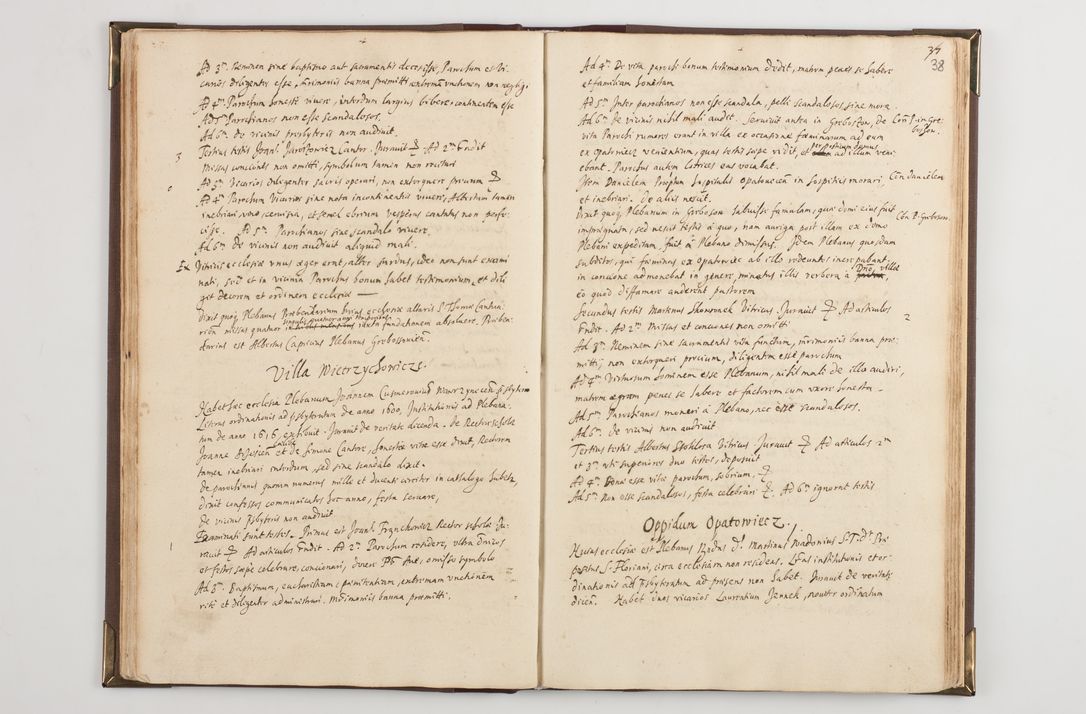 Ad 3m Neminem sine baptismo aut sacramentis decepisse, Parochum et Vi-
carios diligentes esse, mrimoniis banna praemitti extremam unctionem non neglig.
Ad 4m Parochum honeste vivere, interdum largius bibere, continentem esse
Ad 5m Parochianos non esse scandalosos.
Ad 6m De vicinis presbyteris non audivit.
3 Tertius testis Joan: Cantor. Juravit Ad 2m Credit
missas conciones non omitti, symbolum tamen non recitari
Ad 3m Vicarios diligenter sacris operari, non extorquere precium
Ad 4m Parochum Vicarios sine nota incontinentiae vivere, Albertum tamen
inebriari vino, cervisia, et semel ebrium vesperas cantatas non perfe-
cisse. Ad 5m Parochianos sine scandalo vivere.
Ad 6m De vicinis non audivit aliquid mali.
Ex Vitricis ecclesiae unus aeger erat, alter surdus, ideo non sunt exami
nati, sed et in vicinia Parochus bonum habet testimonium, et dili
git decorem et ordinem ecclesiae
Dixit quoq Plebanus Praebendarium huius ecclesiae altaris S. Thomae Cantua
rien missas quatuor iuxta fundationem absolvere. Praeben
darius est Albertus Capicius Plebanus Grobossovien.
Villa Wietrzychowicze.
Habet haec ecclesia Plebanum Joannem
Literas ordinationis ad psbyteratum de anno 1600, Institutionis ad Plebana-
tum de anno 1616 exhibuit. Juravit de veritate dicenda. De Rectore scholae
Joanne et de Simone Cantore, honestae vitae esse dixit, Rectorem
tamen inebriari interdum, sed sine scandalo dixit.
De parochianis quorum numerus mille et ducenti circiter in cathalogo habetur,
dixit confessos communicatos hoc anno, festa servare,
De vicinis psbyteris non audivit
Examinati sunt testes. Primus est Joan: Franchowicz Rector scholae Ju-
1 ravit Ad articulos Credit. Ad 2m Parochum residere, ultra dnicos
et festos saepe celebrare, concionari, docere Pr Ave, omisso symbolo
Ad 3m. Baptismum, eucharistiam, paenitentiam, extremam unctionem
rite et diligenter administrari. Mrimoniis banna praemitti.
37
38
Ad 4m De vita parochi bonum testimonium dedit, matrem penes se habere
et familiam honestam
Ad 5m Inter parochianos non esse scandala, pelli scandalosos sine mora
Ad 6m De vicinis nihil mali audit. Servivit antea in Greboszow, de
Con P. in Gre
boszow.
vita Parochi rumores erant in villa ex occasione faeminarum ad eum
ex Opatowiec venientium, quas testis saepe vidit, et per posticum domus ad illum veni
ebant. Parochus autem lotrices eas vocabat.
Item Danielem Praeptum hospitalis Opatovecen in hospitiis morari,
Con Danielem
et inebriari. De aliis nescit.
Dixit quoq Plebanum in Greboszow habuisse famulam, quae domi eius fuit
Con P. Greboszow.
impraegnata, sed nescit testis a quo, nam auriga post illam ex domo
Plebani expeditam, fuit a Plebano dimissus. Idem Plebanus quosdam
subditos, qui faeminas ex Opatowiec ab illo redeuntes increpabant,
in concione admonebat in genere, minatus illis verbera a Dno villae,
eo quod diffamare auderent pastorem
2 Secundus testis Martinus Skowronek Vitricus. Juravit Ad articulos
Credit. Ad 2m Missas et conciones non omitti
Ad 3m Neminem sine sacramentis vita functum, mrimoniis banna prae
mitti, non extorqueri precium, diligentem esse parochum
Ad 4m Virtuosum hominem esse Plebanum, nihil mali de illo audiri,
matrem aegram penes se habere et factorem cum uxore honestum.
Ad 5m Parochianos moneri a Plebano, nec esse scandalosos.
Ad 6m. De vicinis non audivit
Tertius testis Albertus Stoklosa Vitricus. Juravit Ad articulos 2m
et 3m uti superiores duo testes, deposuit
Ad 4m Bonae esse vitae parochum, sobrium.
Ad 5m Non esse scandalosos, festa celebrari Ad 6m ignorat testis
Oppidum Opatowiecz.
Huius ecclesiae est Plebanus Rndus D. Martinus Wadovius S. T. Dr. Prae
positus S. Floriani, circa ecclesiam non residens. Lras institutionis et or-
dinationis ad psbyteratum ad praesens non habet. Juravit de veritate
dicen. Habet duos vicarios Laurentium Jannek, noviter ordinatum